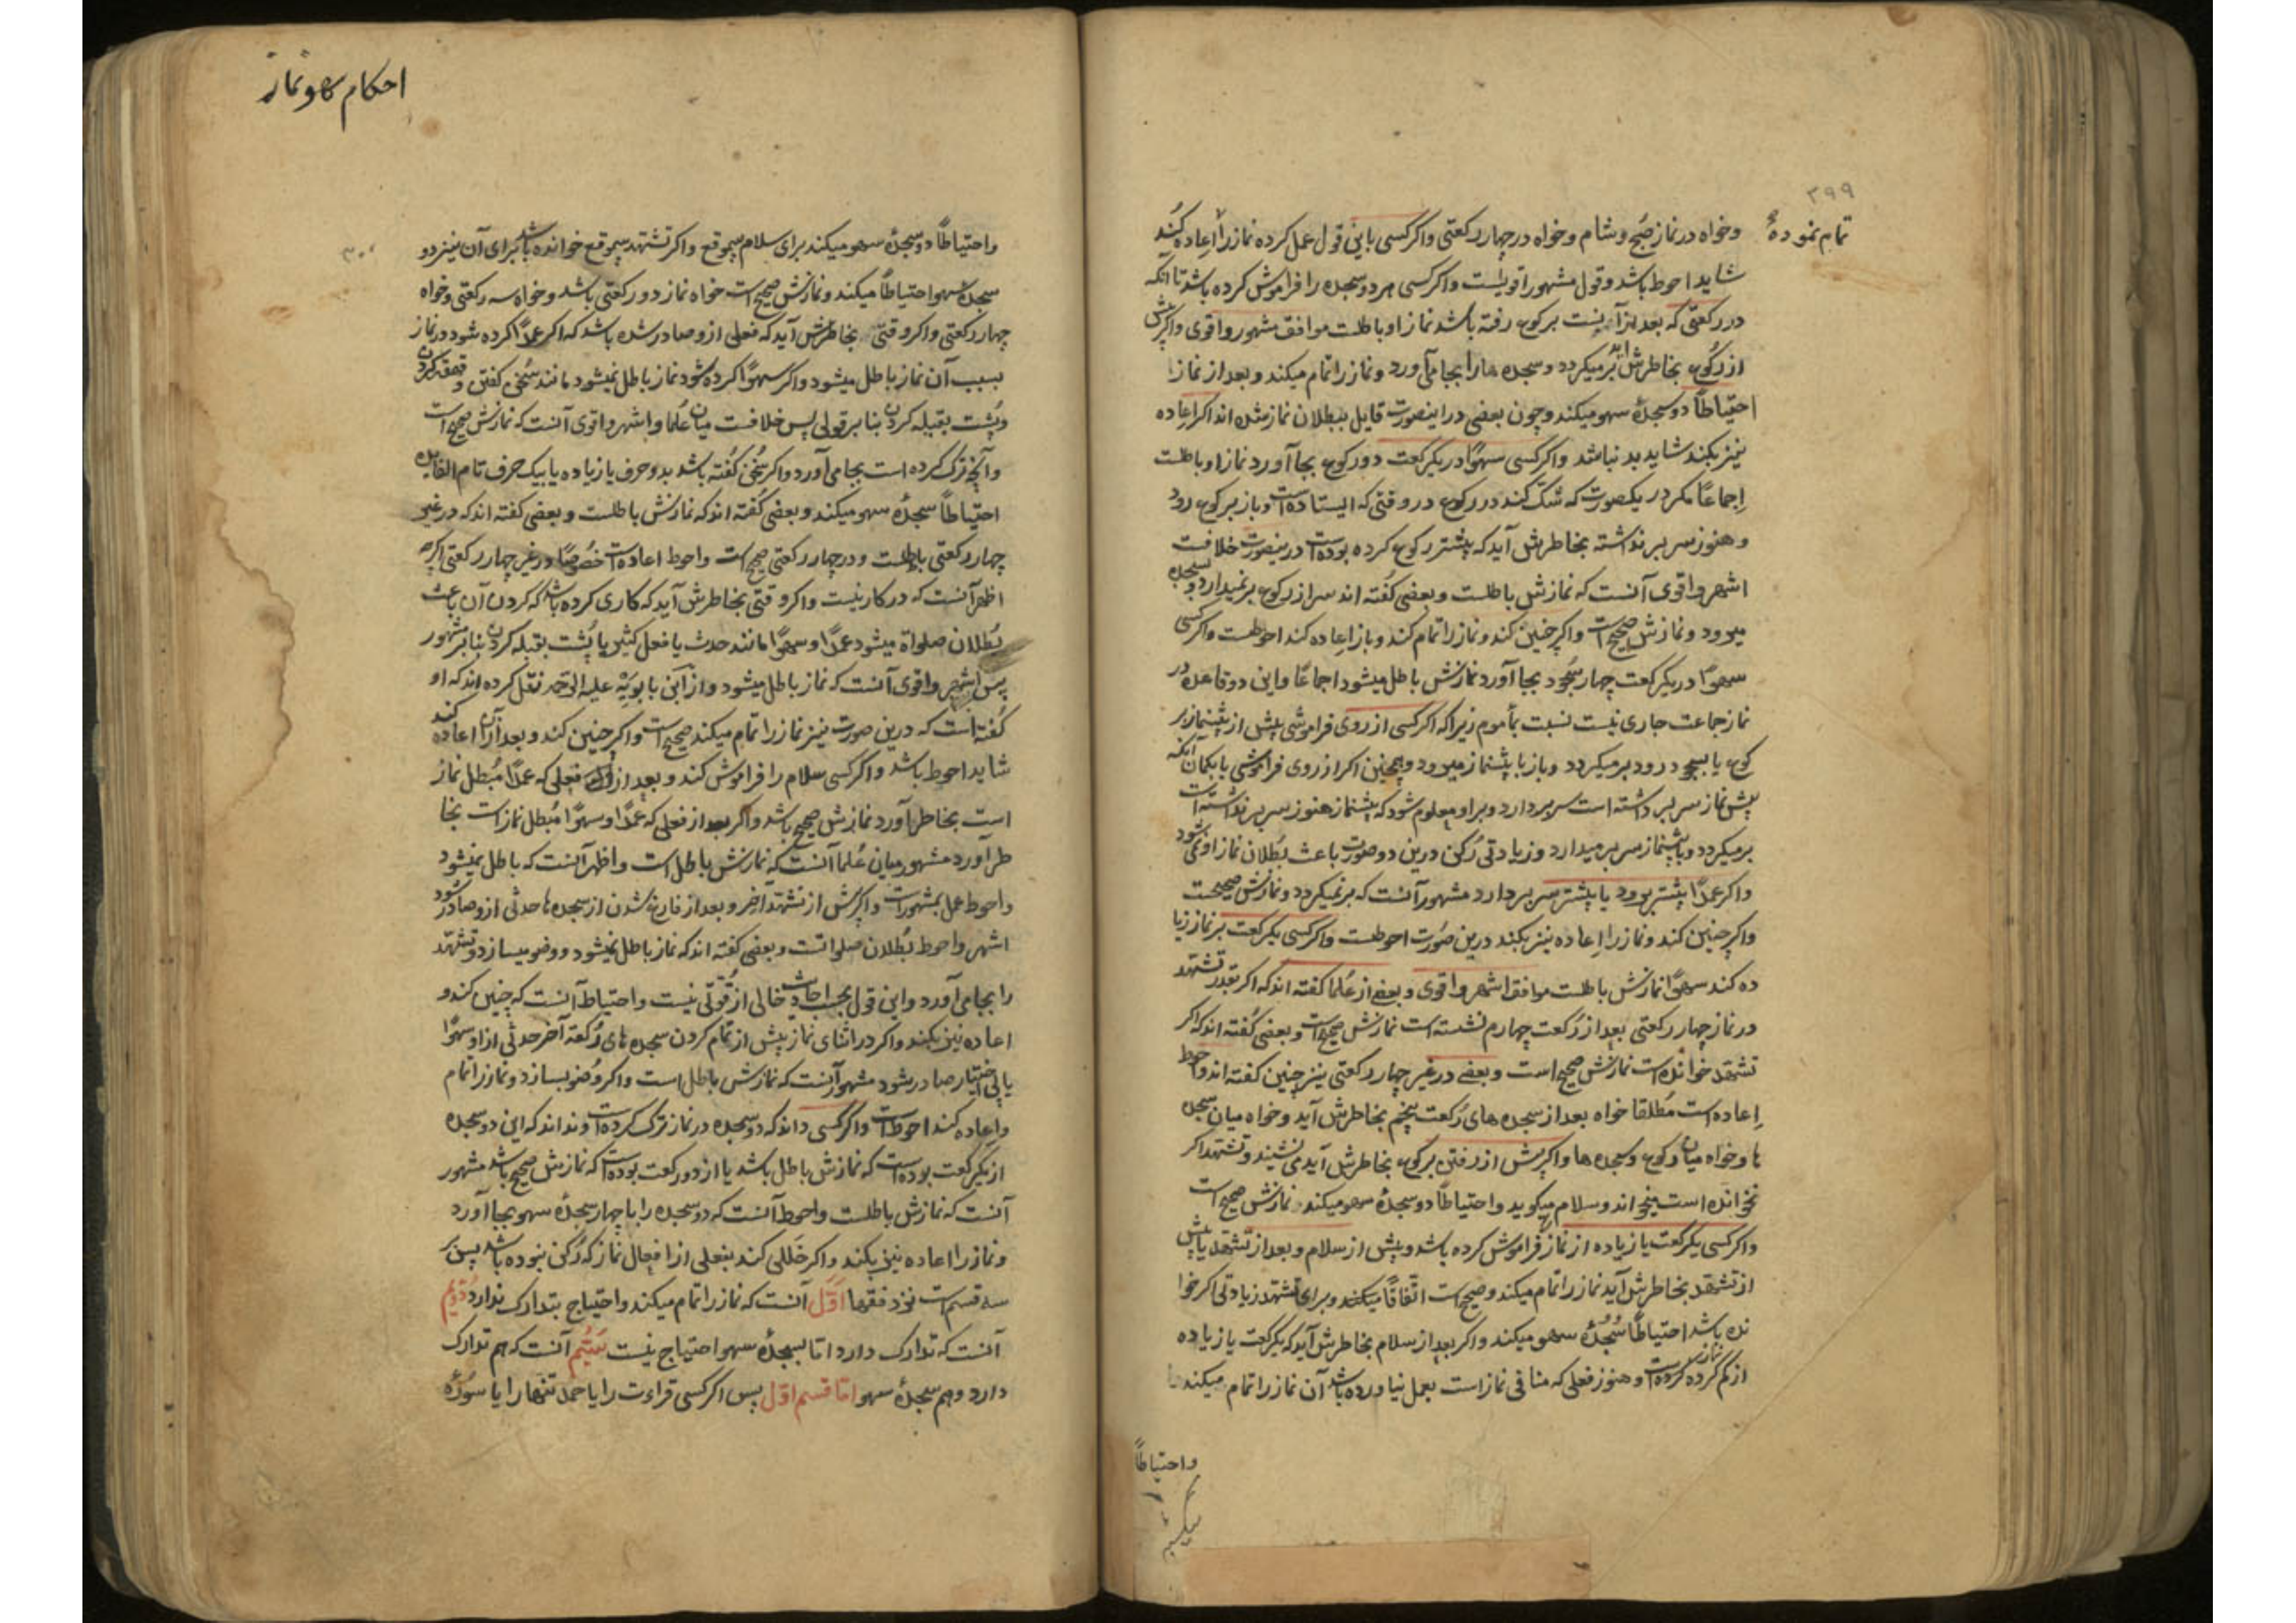 ۳۹۹
تمام نموده
وخواه در نماز صبح و شام و خواه در چهار رکعتی واکر کسی باین قول عمل کرده نماز را اعاده کند
شاید احوط باشد و قول مشهور اقویست واکر کسی هر دو سجده را فراموش کرده باشد تا انکه
در رکعتی که بعد از آنست برکوع رفته باشد نماز او باطلست موافق مشهور و اقوی واکر پیش
از رکوع بخاطرش آید بر میکردد و سجده ها را بجا می آورد و نماز را تمام میکند و بعد از نماز
احتیاطاً دو سجدهٔ سهو میکند و چون بعضی در اینصورت قایل ببطلان نماز شده اند اکر اعاده
نیز بکند شاید بد نباشد واکر کسی سهوًا در یکرکعت دو رکوع بجا آورد نماز او باطلست
اِجماعًا مکر در یکصورت که شک کند در رکوع در وقتی که ایستاده است و باز برکوع رود
و هنوز سر بر نداشته بخاطرش آید که پیشتر رکوع کرده بوده است درینصورت خلافست
اشهر و اقوی آنست که نمازش باطلست و بعضی کفته اند سر از رکوع بر نمیدارد و بسجده
میرود و نمازش صحیح است واکر چنین کند و نماز را تمام کند و باز اعاده کند احوطست واکر کسی
سهوًا در یکرکعت چهار سجود بجا آورد نمازش باطل میشود اجماعًا و این دو قاعده در
نماز جماعت جاری نیست نسبت بمأموم زیرا که اکر کسی از روی فراموشی پیش از پیشنماز بر
کوع یا بسجود رود بر میکردد و باز با پیشنماز میرود و همچنین اکر از روی فراموشی یا بکمان آنکه
پیش نماز سر بر داشته است سر بردارد و بر او معلوم شود که پیشنماز هنوز سر بر نداشته است
بر میکردد و با پیشنماز سر بر میدارد و زیادتی رکن درین دو صورت باعث بطلان نماز او نمی شود
واکر عمدًا پیشتر برود یا پیشتر سر بردارد مشهور آنست که بر نمیکردد و نمازش صحیحست
واکر چنین کند و نماز را اعاده نیز بکند درین صورت احوطست واکر کسی یکرکعت بر نماز زیا
ده کند سهوًا نمازش باطلست موافق اشهر و اقوی و بعضی از علما کفته اند که اکر بقدر تشهد
در نماز چهار رکعتی بعد از رکعت چهارم نشسته است نمازش صحیح است و بعضی کفته اند که اکر
تشهد خوانده است نمازش صحیح است و بعضی در غیر چهار رکعتی نیز چنین کفته اند و احوط
اِعاده است مطلقا خواه بعد از سجده های رکعت پنجم بخاطرش آید و خواه میان سجده
ها و خواه میان رکوع و سجده ها واکر پیش از رفتن برکوع بخاطرش آید می نشیند و تشهد اکر
نخوانده است میخواند و سلام میکوید و احتیاطًا دو سجدهٔ سهو میکند و نمازش صحیح است
واکر کسی یکرکعت یا زیاده از نماز فراموش کرده باشد و پیش از سلام و بعد از تشهد یا پیش
از تشهد بخاطرش آید نماز را تمام میکند و صحیح است اتفاقًا و برای تشهد زیادتی اکر خوا
نده باشد احتیاطًا سجدهٔ سهو میکند واکر بعد از سلام بخاطرش آید که یکرکعت یا زیاده
از نماز کم کرده است و هنوز فعلی که منافی نماز است بعمل نیاورده باشد آن نماز را تمام میکند
واحتیاطاً
احکام سهو نماز
۳۰۰
واحتیاطاً دو سجدهٔ سهو میکند برای سلام بیموقع واکر تشهد بیموقع خوانده باشد برای آن نیز دو
سجدهٔ سهو احتیاطاً میکند و نمازش صحیح است خواه نماز دو رکعتی باشد و خواه سه رکعتی و خواه
چهار رکعتی واکر وقتی بخاطرش آید که فعلی ازو صادر شده باشد که اکر عمدًا کرده شود در نماز
بسبب آن نماز باطل میشود واکر سهوًا کرده شود نماز باطل نمیشود مانند سخن کفتن و قهقهه کردن
و پشت بقبله کردن بنا بر قولی پس خلافست میان علما و اشهر و اقوی آنست که نمازش صحیح است
و آنچه ترک کرده است بجا می آورد واکر سخن کفته باشد بدو حرف یا زیاده یا بیک حرف تام الفایده
احتیاطاً سجدهٔ سهو میکند و بعضی کفته اند که نمازش باطلست و بعضی کفته اند که در غیر
چهار رکعتی باطلست و در چهار رکعتی صحیح است و احوط اعاده است خصوصًا در غیر چهار رکعتی اکرچه
اظهر آنست که در کار نیست واکر وقتی بخاطرش آید که کاری کرده باشد که کردن آن باعث
بطلان صلواة میشود عمدًا و سهوًا مانند حدث یا فعل کثیر یا پشت بقبله کردن بنا بر مشهور
پس اشهر و اقوی آنست که نماز باطل میشود و از ابن بابویه علیه الرحمه نقل کرده اند که او
کفته است که درین صورت نیز نماز را تمام میکند صحیح است واکر چنین کند و بعد از آن اعاده کند
شاید احوط باشد واکر کسی سلام را فراموش کند و بعد از فعلی که عمدًا مبطل نماز
است بخاطر آورد نمازش صحیح باشد واکر بعد از فعلی که عمدًا و سهوًا مبطل نماز است بخا
طر آورد مشهور میان علما آنست که نمازش باطل است و اظهر آنست که باطل نمیشود
و احوط عمل بمشهور است واکر پیش از تشهد آخر و بعد از فارغ شدن از سجده ها حدثی ازو صادر شود
اشهر و احوط بطلان صلواتست و بعضی کفته اند که نماز باطل نمیشود و وضو میسازد و تشهد
را بجا می آورد و این قول بحسب احادیث خالی از قوتی نیست و احتیاط آنست که چنین کند و
اعاده نیز بکند واکر در اثنای نماز پیش از تمام کردن سجده های رکعة آخر حدثی از او سهوًا
یا بی اختیار صادر شود مشهور آنست که نمازش باطل است واکر وضو بسازد و نماز را تمام
و اعاده کند احوط است واکر کسی داند که دو سجده در نماز ترک کرده است و نداند که این دو سجده
از یکرکعت بوده است که نمازش باطل باشد یا از دو رکعت بوده است که نمازش صحیح باشد مشهور
آنست که نمازش باطلست و احوط آنست که دو سجده را با چهار سجدهٔ سهو بجا آورد
و نماز را اعاده نیز بکند واکر خللی کند بفعلی از افعال نماز که رکن نبوده باشد پس بر
سه قسم است نزد فقها اوّل آنست که نماز را تمام میکند و احتیاج بتدارک ندارد دوّیم
آنست که تدارک دارد امّا بسجدهٔ سهو احتیاج نیست سیّم آنست که هم تدارک
دارد و هم سجدهٔ سهو امّا قسم اوّل پس اکر کسی قراءت را یا حمد تنها را یا سورهٔ